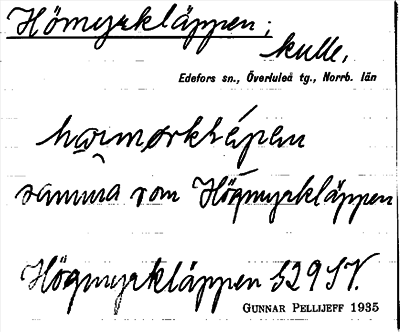 Hömyrkläppen;
kulle,
Edefors sn., Överluleå tg., Norrb. län
samma som Högmyrkläppen
Högmyrkläppen S29SV.
GUNNAR PELLIJEFF 1935